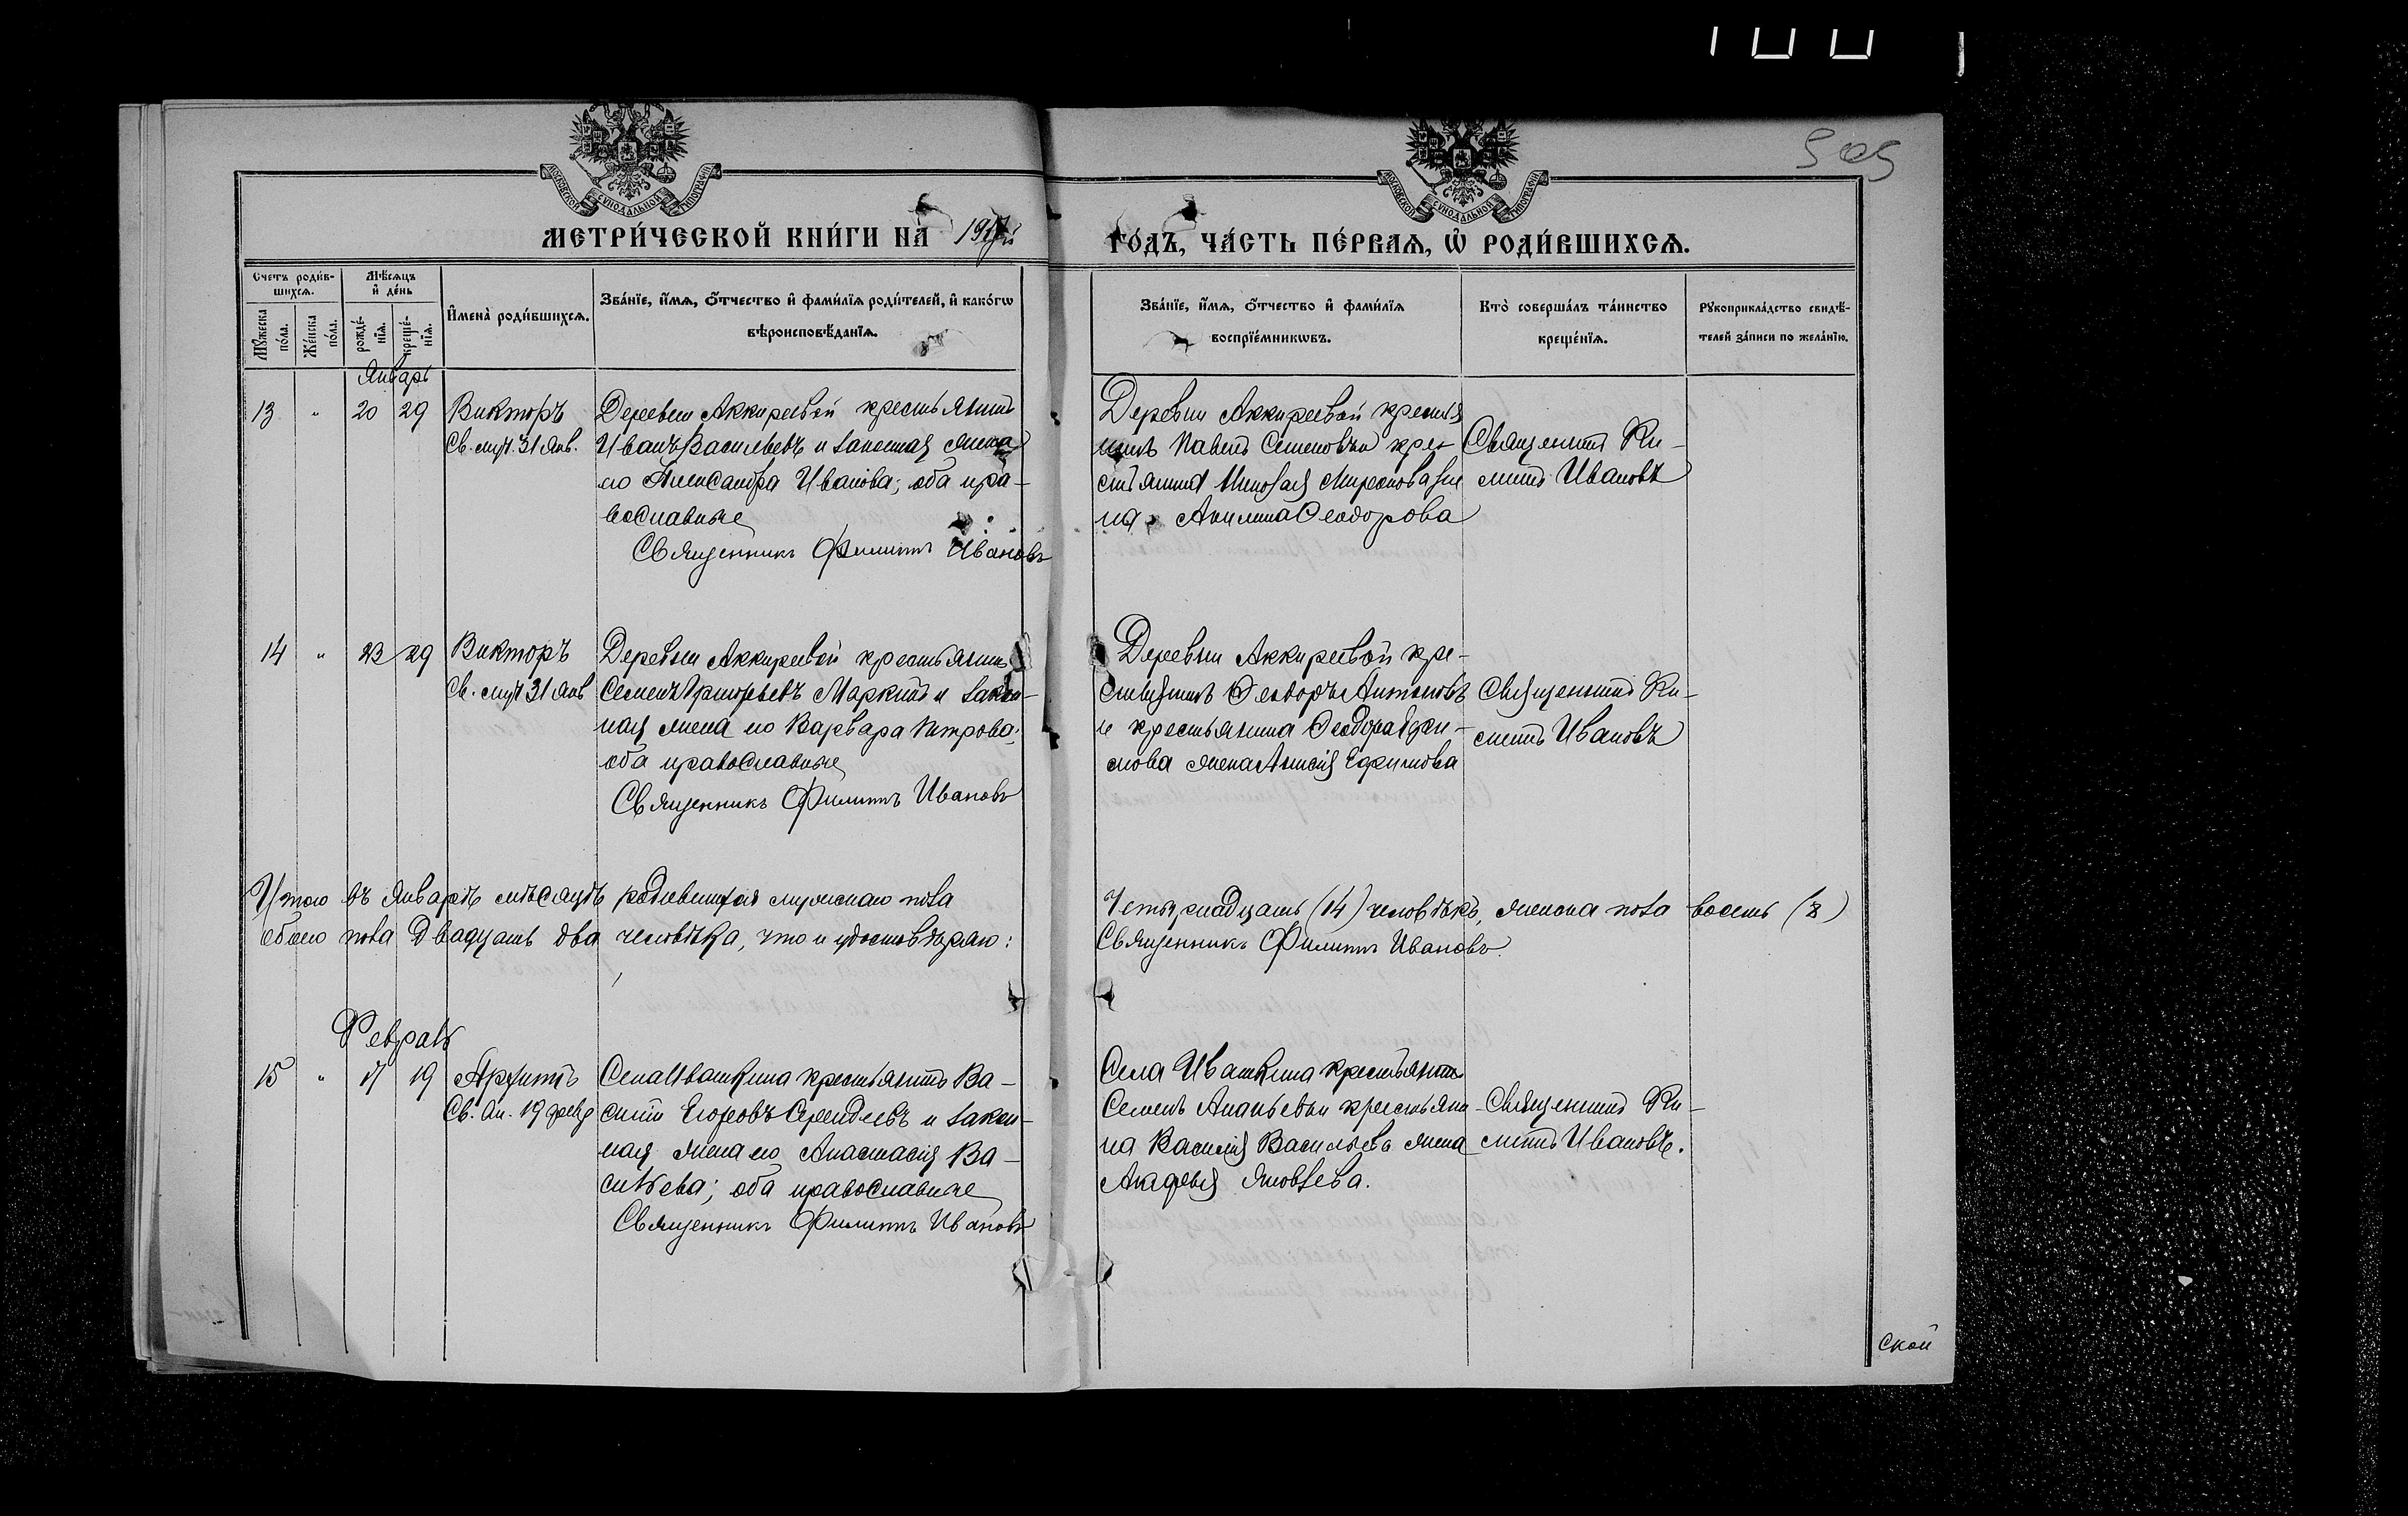 505
МОСКОВСКОЙ СУНОДАЛЬНОЙ ТИПОГРАФІИ
МОСКОВСКОЙ СУНОДАЛЬНОЙ ТИПОГРАФІИ
МЕТРИ́ЧЕСКОЙ КНИ́ГИ НА̀ 1917й ГО́ДЪ, ЧА́СТЬ ПЕ́РВАѦ, Ѡ҆ РОДИ́ВШИХСѦ.
Счетъ роди́в-
шихсѧ.
Мѣ́сѧцъ
и҆ де́нь
И҆мена̀ роди́вшихсѧ.
Зва́нїе, и҆́мѧ, ѻ҆́тчество и҆ фами́лїѧ роди́телей, и҆ како́гѡ
вѣроисповѣ́данїѧ.
Зва́нїе, и҆́мѧ, ѻ҆́тчество и҆ фами́лїѧ
воспрїе́мникѡвъ.
Кто̀ соверша́лъ та́инство
креще́нїѧ.
Рꙋкоприкла́дство свидѣ́-
телей за́писи по жела́нїю.
Мꙋ́жеска
по́ла.
Же́нска
по́ла.
рожде́-
нїѧ.
креще́-
нїѧ.
Январь
13 " 20 29 Викторъ
Св. муч. 31 Янв.
Деревни Аккиреевой крестьянинъ
Иванъ Васильевъ и законная жена
его Александра Иванова; оба пра-
вославные
Священникъ Филиппъ Ивановъ
Деревни Аккиреевой крестья
нинъ Павелъ Семеновъ и кре-
стьянина Николая Миронова же
на Акилина Феодорова
Священникъ Фи-
липпъ Ивановъ
14 " 23 29 Викторъ
Св. муч 31 Янв
Деревни Аккиреевой крестьянинъ
Семенъ Григорьевъ и закон-
ная жена его Варвара Петрова;
оба православные
Священникъ Филиппъ Ивановъ
Деревни Аккиреевой кре-
стьянинъ Феодоръ Антоновъ
и крестьянина Феодора Ефи-
мова жена Ефимова
Священникъ Фи-
липпъ Ивановъ
Итого въ Январѣ мѣсяцѣ родившихся мужскаго пола Четырнадцать (14) человѣкъ, женска пола восемь (8)
обоего пола двадцать два человѣка, что и удостовѣряю: Священникъ Филиппъ Ивановъ.
Февраль
15 " 17 19 Архиппъ
Св. Ап. 19 февр
Села Ивашкина крестьянинъ Ва-
силій Егоровъ и закон-
ная жена его Анастасія Ва-
сильева; оба православные
Священникъ Филиппъ Ивановъ
Села Ивашкина крестьянинъ
Семенъ Ананьевъ и крестьяни-
на Василія Васильева жена
Яковлева.
Священникъ Фи-
липпъ Ивановъ.
ской